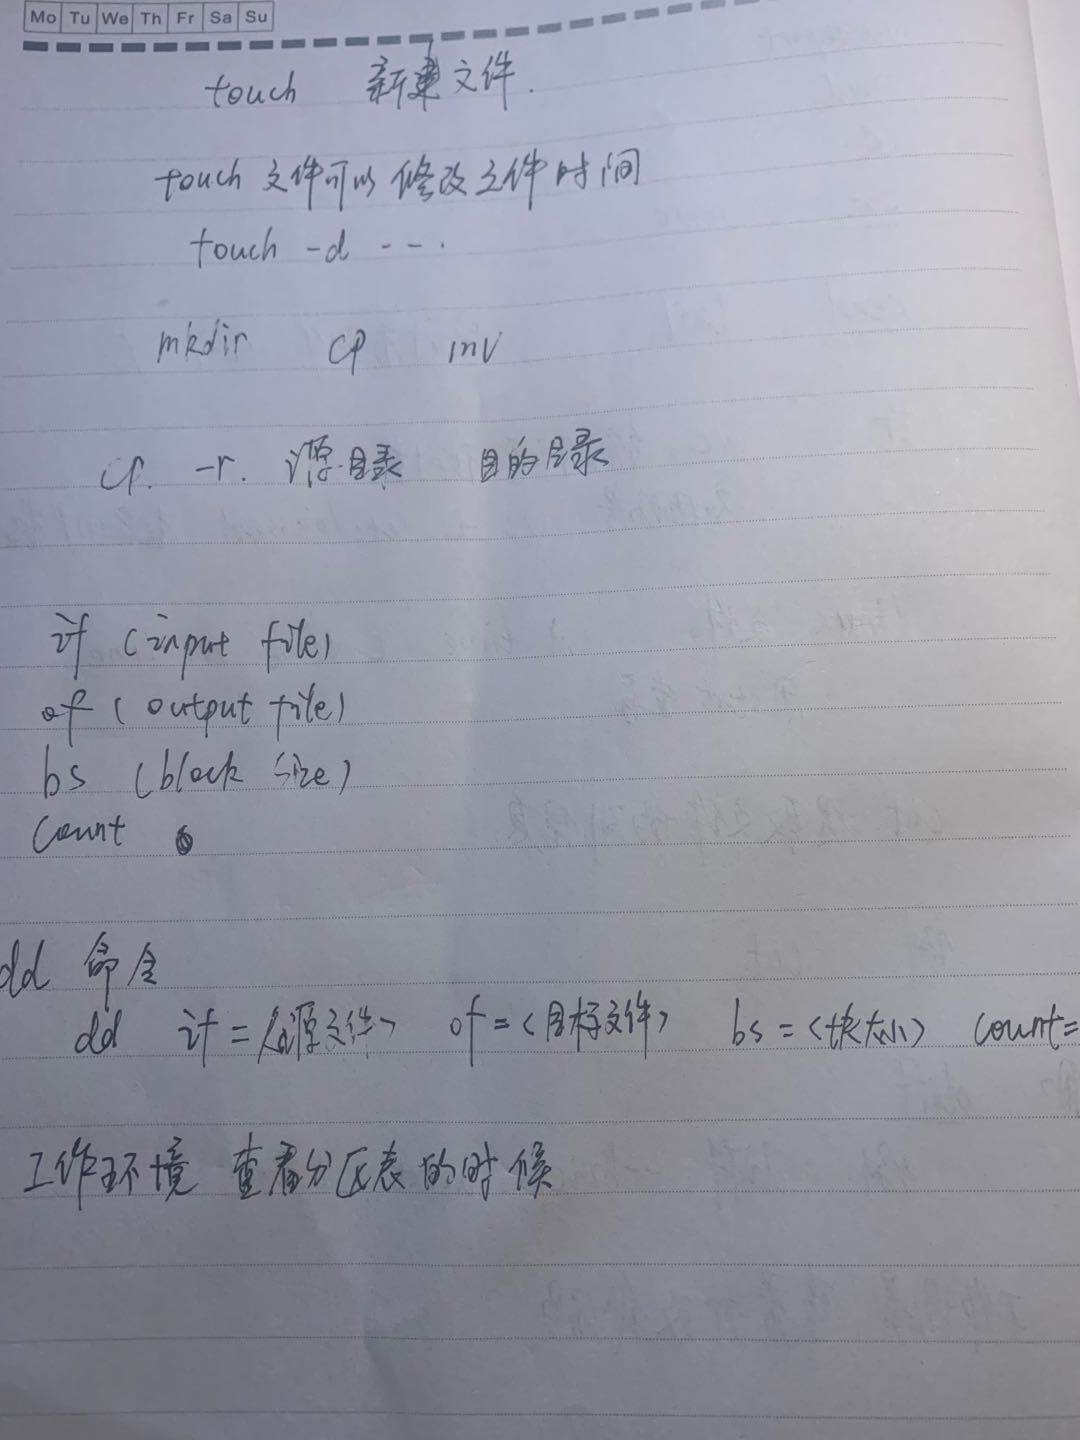 Mo Tu We Th Fr Sa Su
touch 新建文件.
touch 文件可以修改文件时间
touch -d ---.
mkdir cp mv
cp. -r. 源目录 目的目录
if (input file)
of (output file)
bs (block size)
count
dd 命令
dd if=<源文件> of=<目标文件> bs=<块大小> count=
工作环境 查看分区表的时候